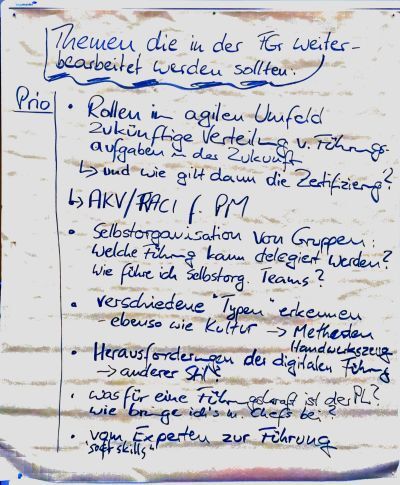 Themen die in der FGr weiter-
bearbeitet werden sollten:
Prio
• Rollen im agilen Umfeld
zukünftige Verteilung v. Führungs-
aufgaben in der Zukunft
↳ und wie gibt dann die Zertifizierung?
↳ AKV/RACI f. PM
• Selbstorganisation von Gruppen:
Welche Führung kann delegiert werden?
Wie führe ich selbstorg. Teams?
• verschiedene "Typen" erkennen
- ebenso wie Kultur → Methoden
Handwerkszeug
• Herausforderungen der digitalen Führung
→ anderer Stil?
• was für eine Führungskraft ist der PL?
wie bringe ich's m. Chefs bei?
• vom Experten zur Führung
"soft skills"